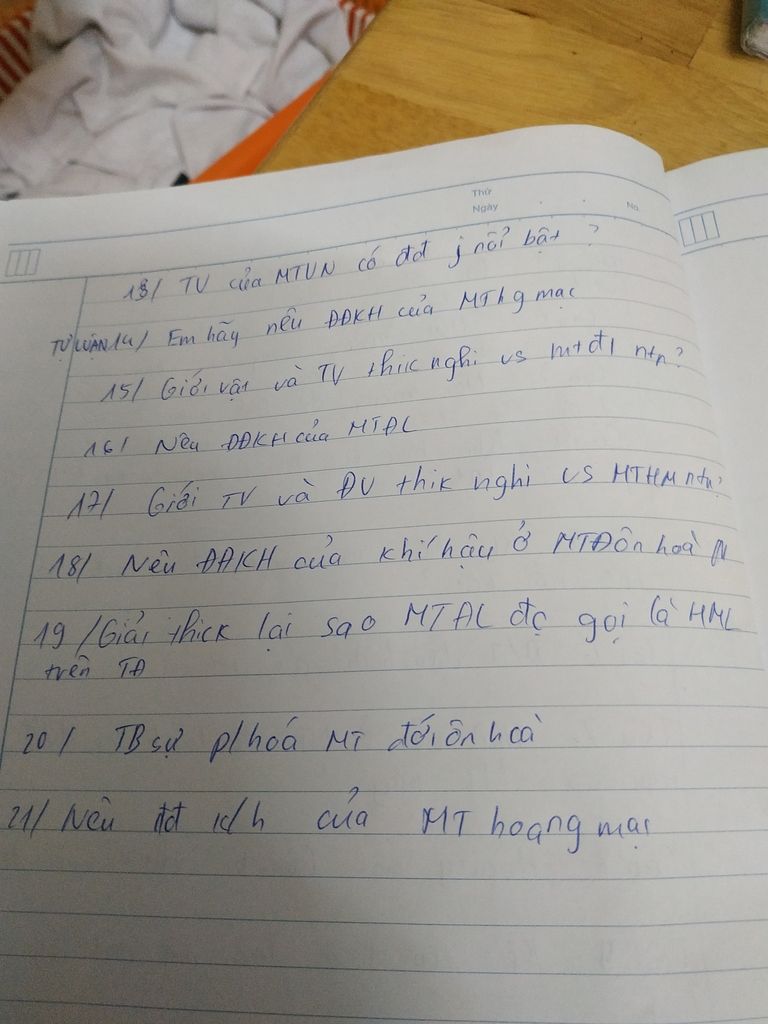 Thứ
Ngày
No
13/ TV của MTVN có đđ j nổi bật ?
TỰ LUẬN 14/ Em hãy nêu ĐĐKH của MTh g mạc
15/ Giới vật và TV thik nghi vs mt đl ntn?
16/ Nêu ĐĐKH của MTĐL
17/ Giới TV và ĐV thik nghi vs MTHM ntn?
18/ Nêu ĐĐKH của khí hậu ở MTĐôn hoà
19/ Giải thick lại sao MTĐL đc gọi là HML
trên TĐ
20/ TB sự p/hoá MT đới ôn hoà
21/ Nêu đđ k/h của MT hoang mạc